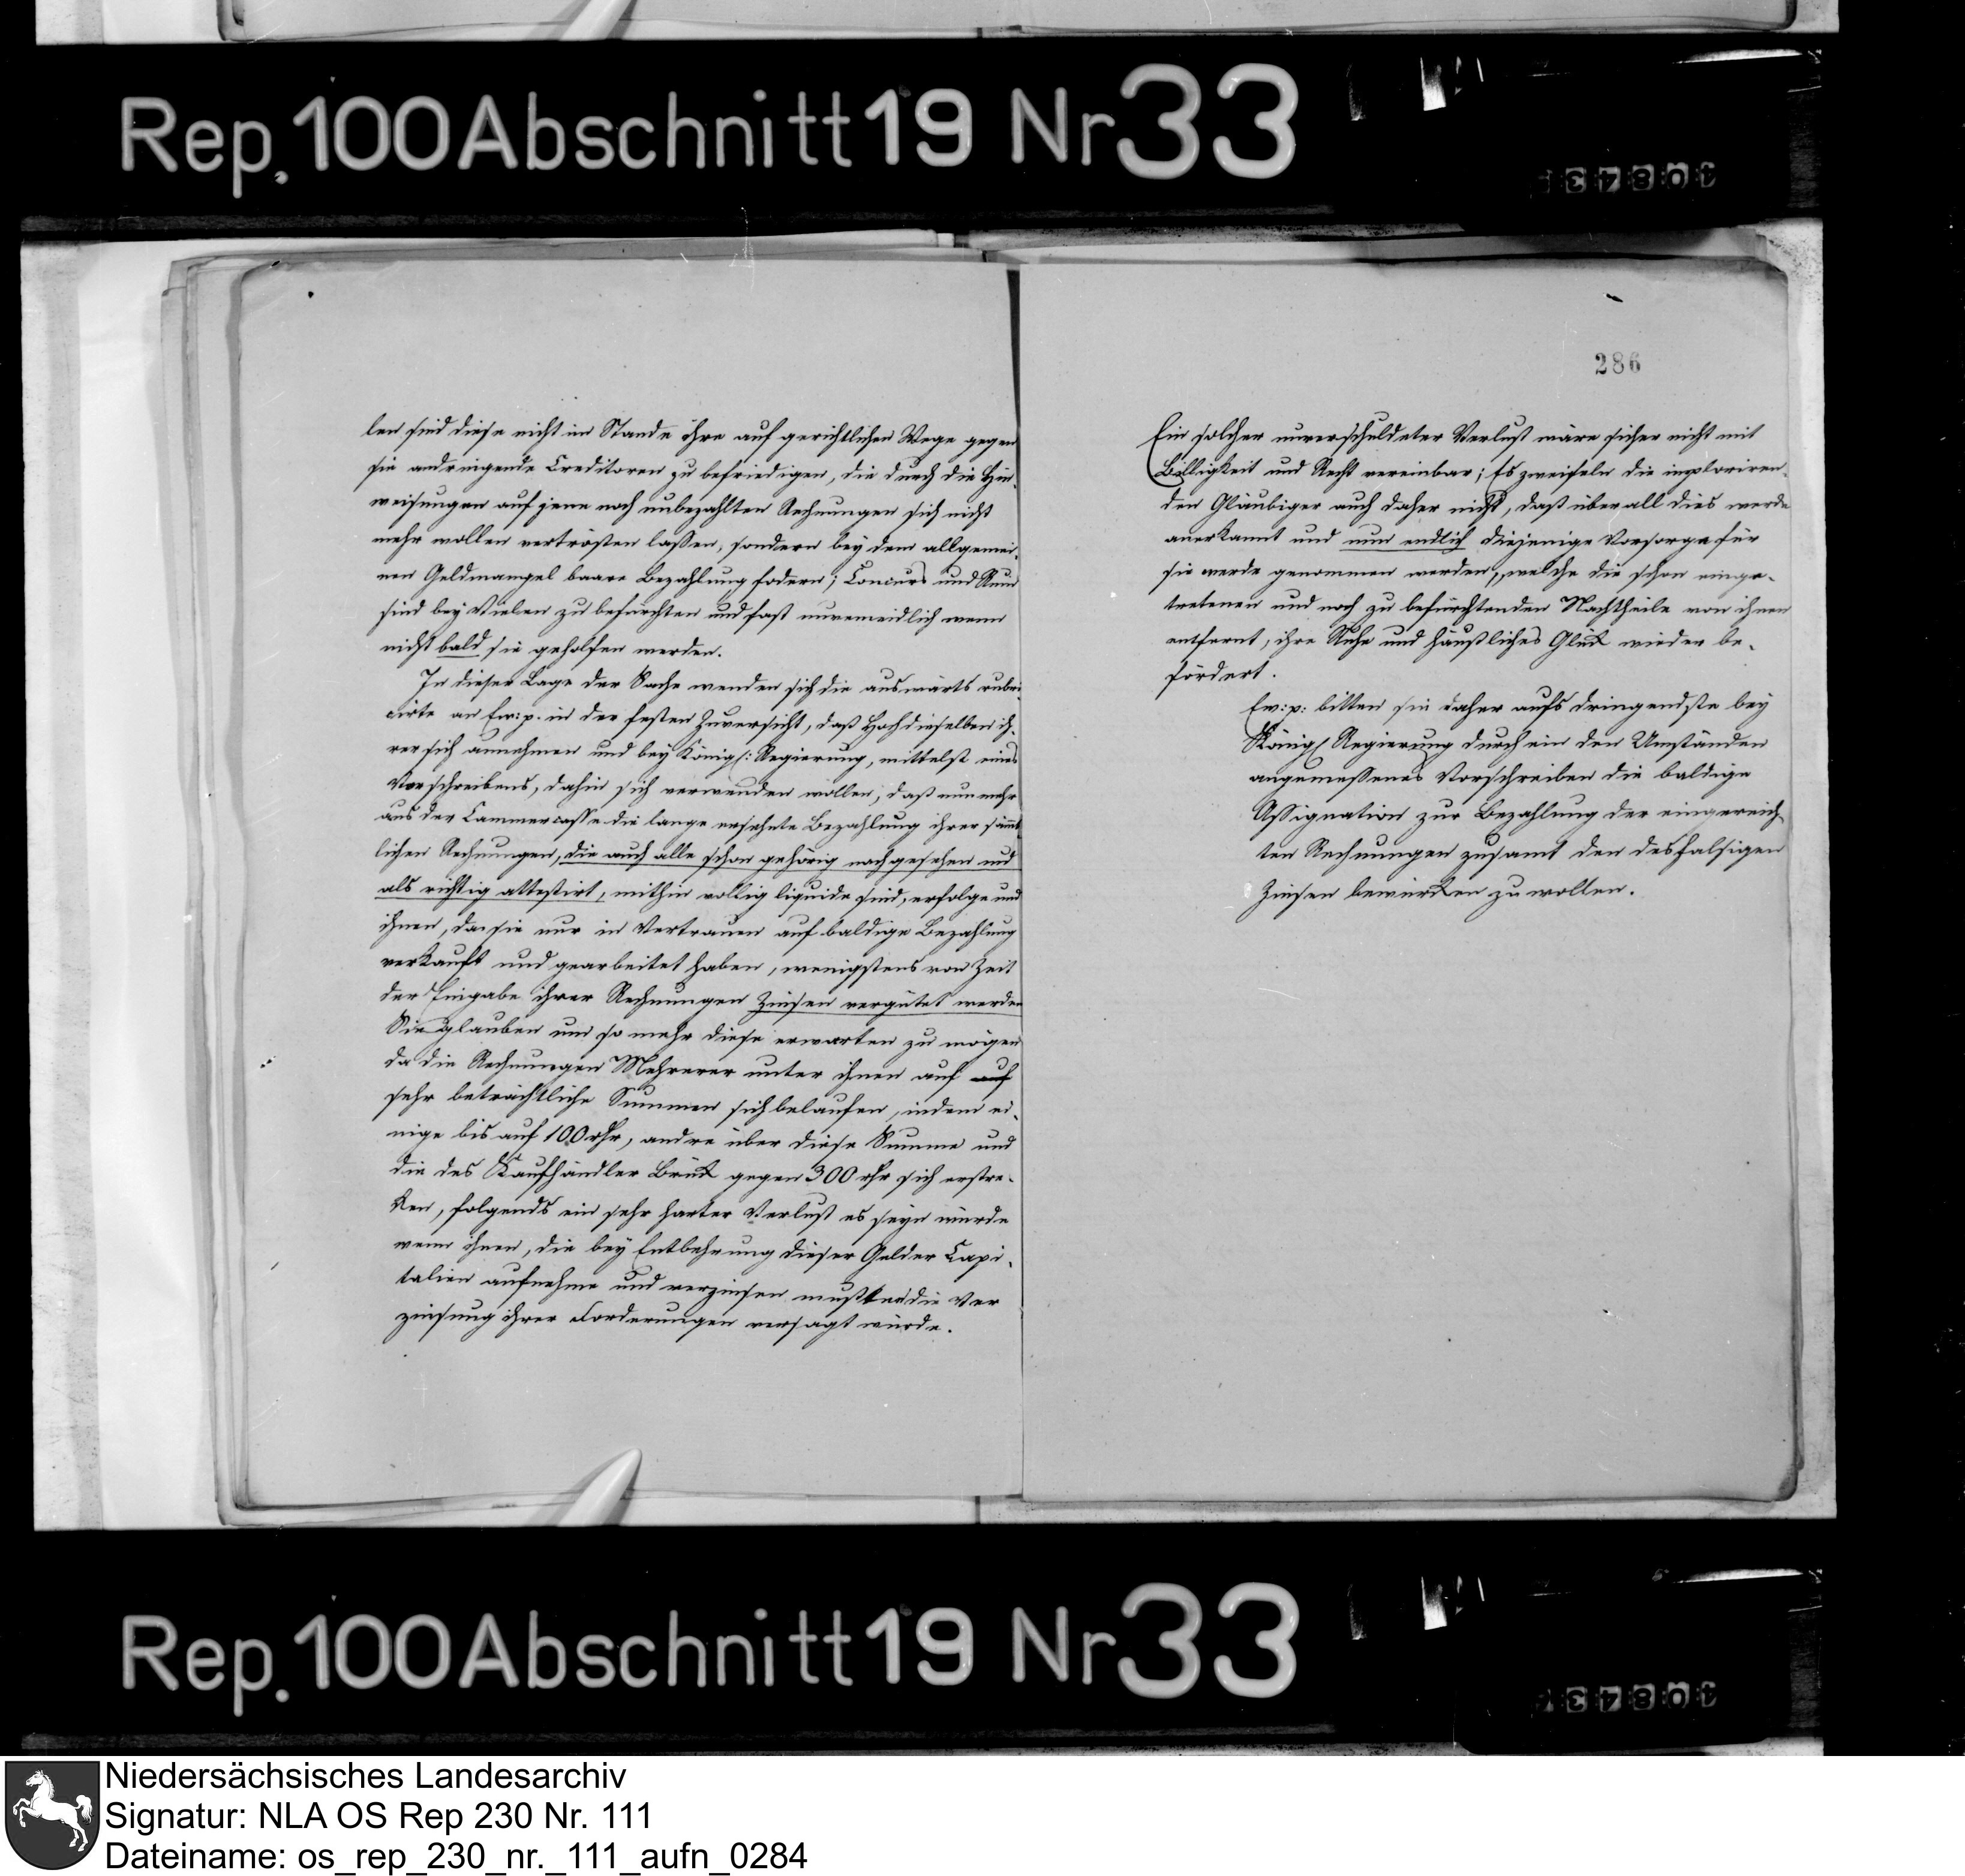 Rep. 100 Abschnitt 19 Nr 33
len sind diese nicht im Stande ihre auf gerichtlichen Wege gegen
sie andringende Creditoren zu befriedigen, die durch die Hin-
weisungen auf jene noch unbezahlten Rechnungen sich nicht
mehr wollen vertrösten lassen, sondern bey dem allgemei-
nen Geldmangel baare Bezahlung fodern; Concurs und Ruin
sind bey Vielen zu befürchten und fast unvermeidlich wenn
nicht bald sie geholfen werden.
In dieser Lage der Sache wenden sich die auswärts rubri-
cirte an Ew: p. in der festen Zuversicht, daß Hochdieselben ih-
rer sich annehmen und bey Königl: Regierung, mittelst eines
Vorschreibens, dahin sich verwenden wollen, daß nunmehr
aus der Cammercasse die lange ersehnte Bezahlung ihrer sämt
lichen Rechnungen, die auch alle schon gehörig nachgesehen und
als richtig attestirt, mithin völlig liquide sind, erfolge und
ihnen, da sie nur in Vertrauen auf baldige Bezahlung
verkauft und gearbeitet haben, wenigstens von Zeit
der Eingabe ihrer Rechnungen Zinsen vergütet werden
Sie glauben um so mehr diese erwarten zu mögen
da die Rechnungen Mehrerer unter ihnen auf auf
sehr beträchtliche Summen sich belaufen, indem ei-
nige bis auf 100 rthr, andre über diese Summe und
die des Kaufhändler Brük gegen 300 rthr sich erstre-
ken, folgends ein sehr harter Verlust es seyn würde
wenn ihnen, die bey Entbehrung dieser Gelder Capi-
talien aufnehme und verzinsen mußten die Ver
zinsung ihrer Forderungen versagt würde.
286
Ein solcher unverschuldeter Verlust wäre sicher nicht mit
Billigkeit und Recht vereinbar; Es zweifeln die imploriren-
den Gläubiger auch daher nicht, daß überall dies werde
anerkannt und nun endlich diejenige Vorsorge für
sie werde genommen werden, welche die schon einge-
tretenen und noch zu befürchtenden Nachtheile von ihnen
entfernt, ihre Ruhe und häußliches Glük wieder be-
fördert.
Ew: p: bitten sie daher aufs dringendste bey
Königl Regierung durch ein den Umständen
angemessenes Vorschreiben die baldige
Assignation zur Bezahlung der eingereich-
ten Rechnungen zusamt den desfalsigen
Zinsen bewürken zu wollen.
Rep. 100 Abschnitt 19 Nr 33
Niedersächsisches Landesarchiv
Signatur: NLA OS Rep 230 Nr. 111
Dateiname: os_rep_230_nr._111_aufn_0284